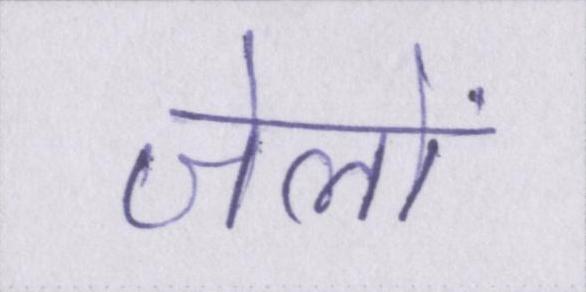 जेलों